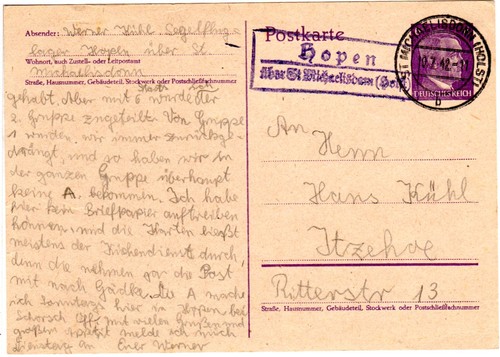 Absender: Werner Kühl, Segelflug-
lager Hopen über St.
Wohnort, auch Zustell- oder Leitpostamt
Michaelisdonn
Straße, Hausnummer, Gebäudeteil, Stockwerk oder Postschließfachnummer
Start ich
gehabt. Aber mit 6 wurde der
2. Gruppe zugeteilt. Von Gruppe
1 wurden wir immer zurückge-
drängt, und so haben wir in
der ganzen Gruppe überhaupt
keine A. bekommen. Ich habe
hier kein Briefpapier auftreiben
können, und die Karten
meistens der Küchendienst durch,
denn die nehmen die Post
mit nach Gudke. Die A mache
ich Sonntag hier in Hopen bei
mit vielen Grüßen und
großem melde ich mich
Dienstag an Euer Werner
Postkarte
Hopen
über St Michaelisdonn (Holst)
ST MICHAELISDONN (HOLST)
7. 42
b
DEUTSCHES REICH
An
Herrn
Hans Kühl
Itzehoe
Ritterstr 13
Straße, Hausnummer, Gebäudeteil, Stockwerk oder Postschließfachnummer